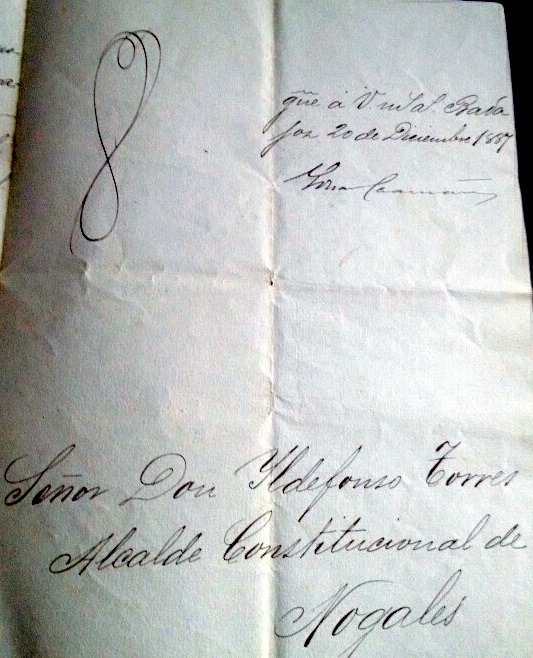 gũe á V. m.s a.s Bada
joz 20 de Diciembre 1887
Señor Don Yldefonso Torres
Alcalde Constitucional de
Nogales